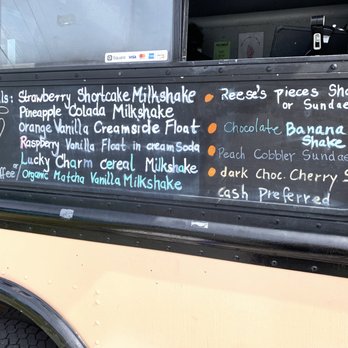 Square VISA
ls: Strawberry Shortcake Milkshake
Pineapple Colada Milkshake
Orange Vanilla Creamside Float
Raspberry Vanilla Float in cream Soda
Lucky Charm cereal Milkshake
offee/ Organic Matcha Vanilla Milkshake
Reese's pieces Sha
or Sundae
Chocolate Banana
Shake
Peach Cobbler Sundae
dark Choc. Cherry S
cash Preferred